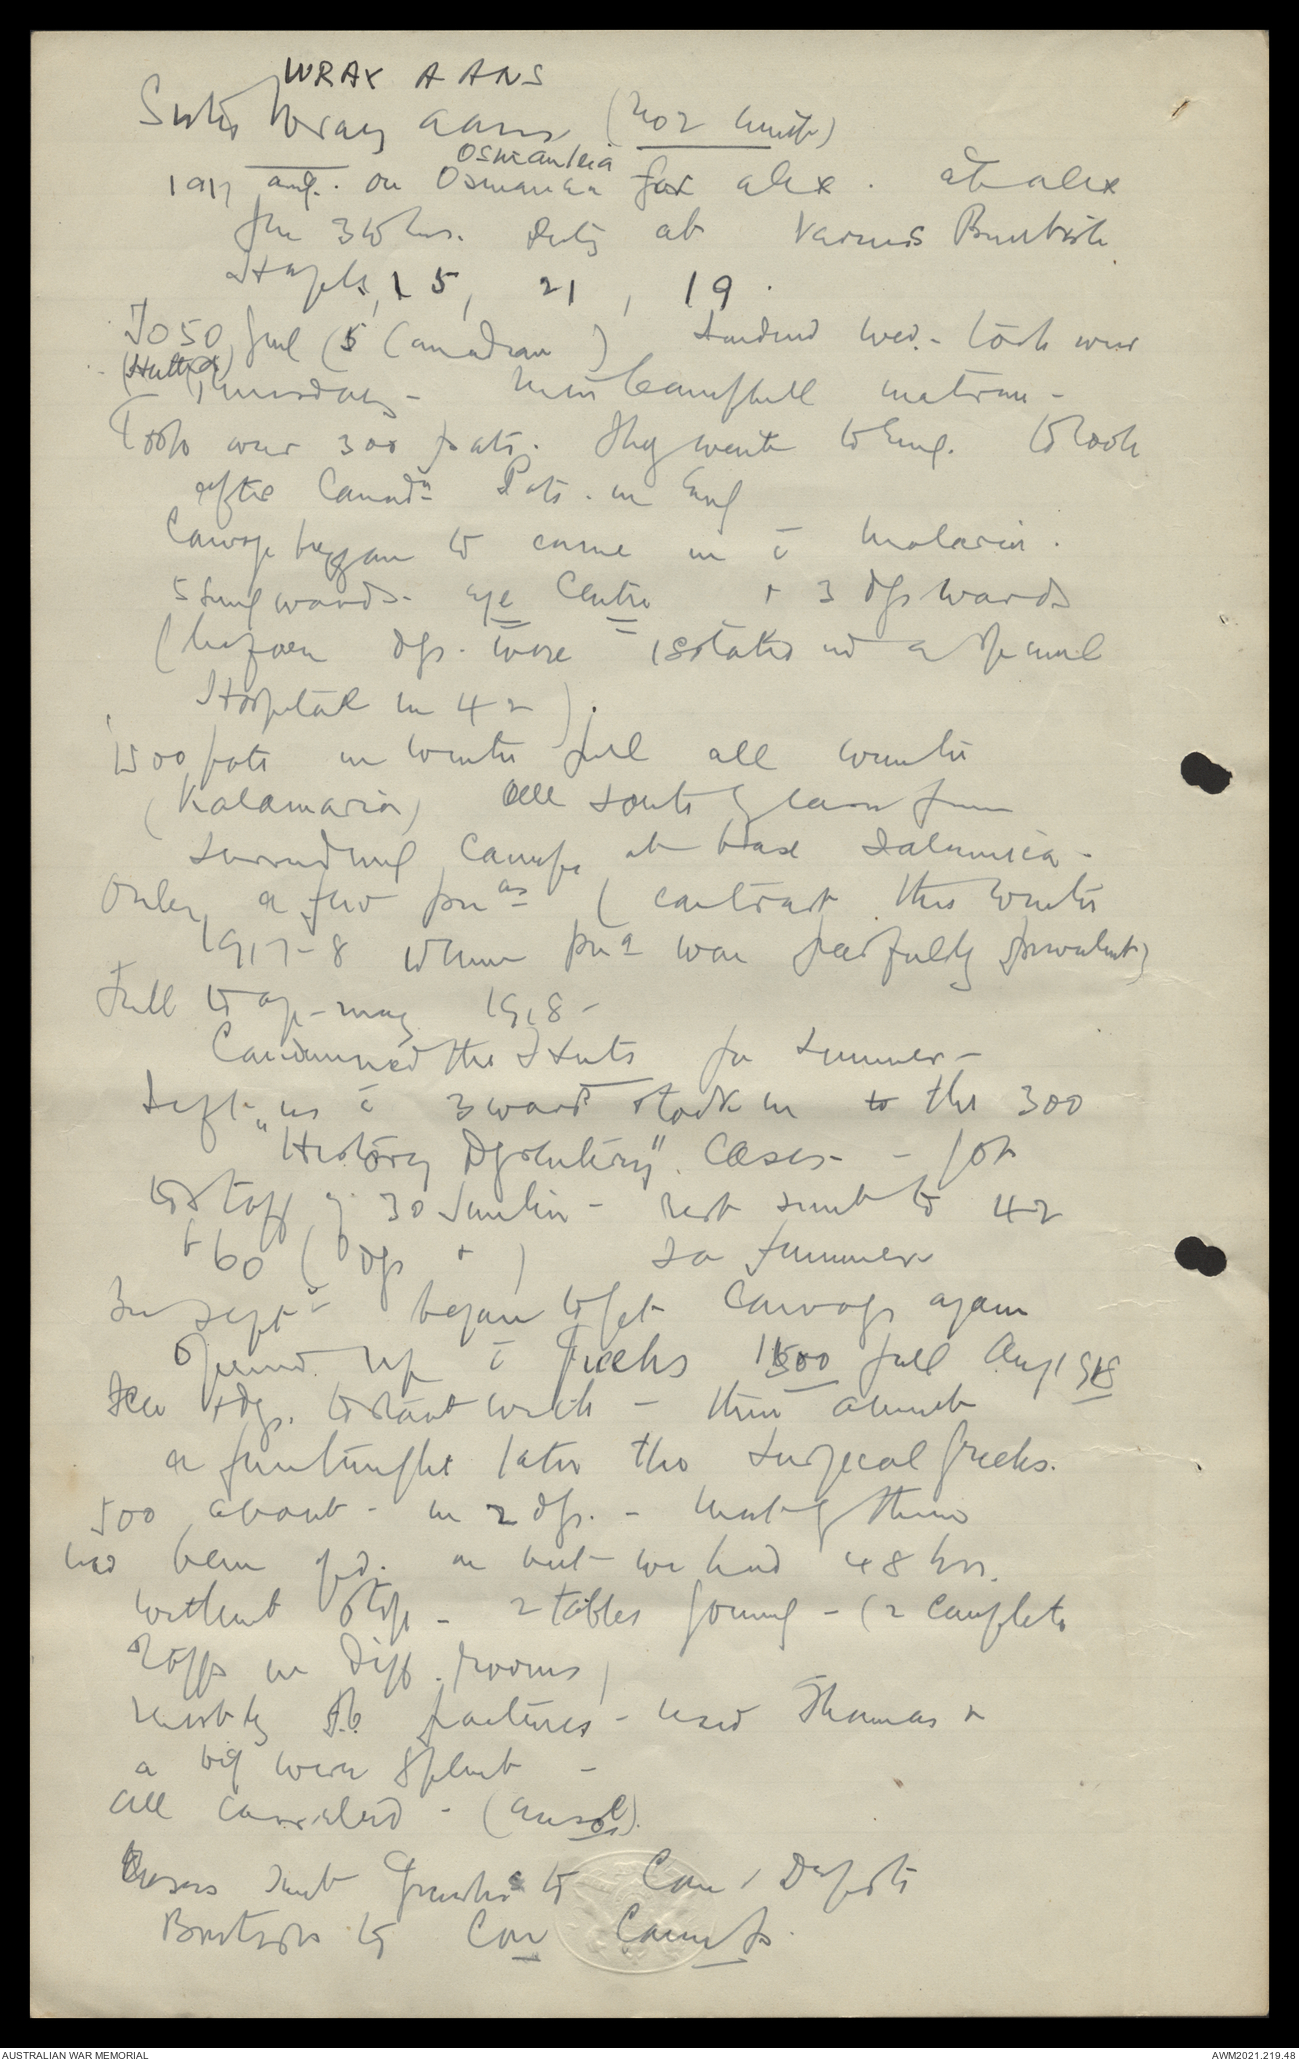 WRAY AANS
Sister Wray aans (No 2 Unit)
Osmanieia
1917 aug. on Osmania for alex. at alex
for 3 Whrs. Duty at Various British
Hospls, 15, 21, 19.
To 50 Genl (5 Canadian) Landed Wed - took over
(Hutted)
Thursday - Miss Campbell matron -
Took over 300 pats. They went to Eng. to look
after Canadn Pats. in Eng
Convoys began to come in c̄ malaria.
5 Surg wards - eye Centre + 3 dys wards
(before dys. were isolated in a special
Hospital in 42).
1500 pats in winter full all winter
(Kalamaria) All sorts of cases from
surrounding Camps at base Salonica -
Only a few pneas (contrast this winter
1917-8 when pna was fearfully prevalent)
Full to ap - may 1918 -
Condemned the Huts for summer -
Left us c̄ 3 wards & took in to the 300
"History Dysentery" Cases - - got
to staff of 30 - rest sent to 42
& 60 ( dys + ) So summer
In Sept began to get Convoys again
Opened up c̄ Greeks 1500 full Aug 1918
to start with - then almost
a fortnight later the surgical Greeks.
500 about - in 2 dys. - most of them
had been opd. on but we had 48 hrs.
without stop - 2 tables going - (2 complete
staffs in diff. rooms)
mostly fractures - used Thomas +
a big wire splint -
All - (eusol).
Cases sent Greeks to Con. Depots
British to Con Camps.
AUSTRALIAN WAR MEMORIAL
AWM2021.219.48